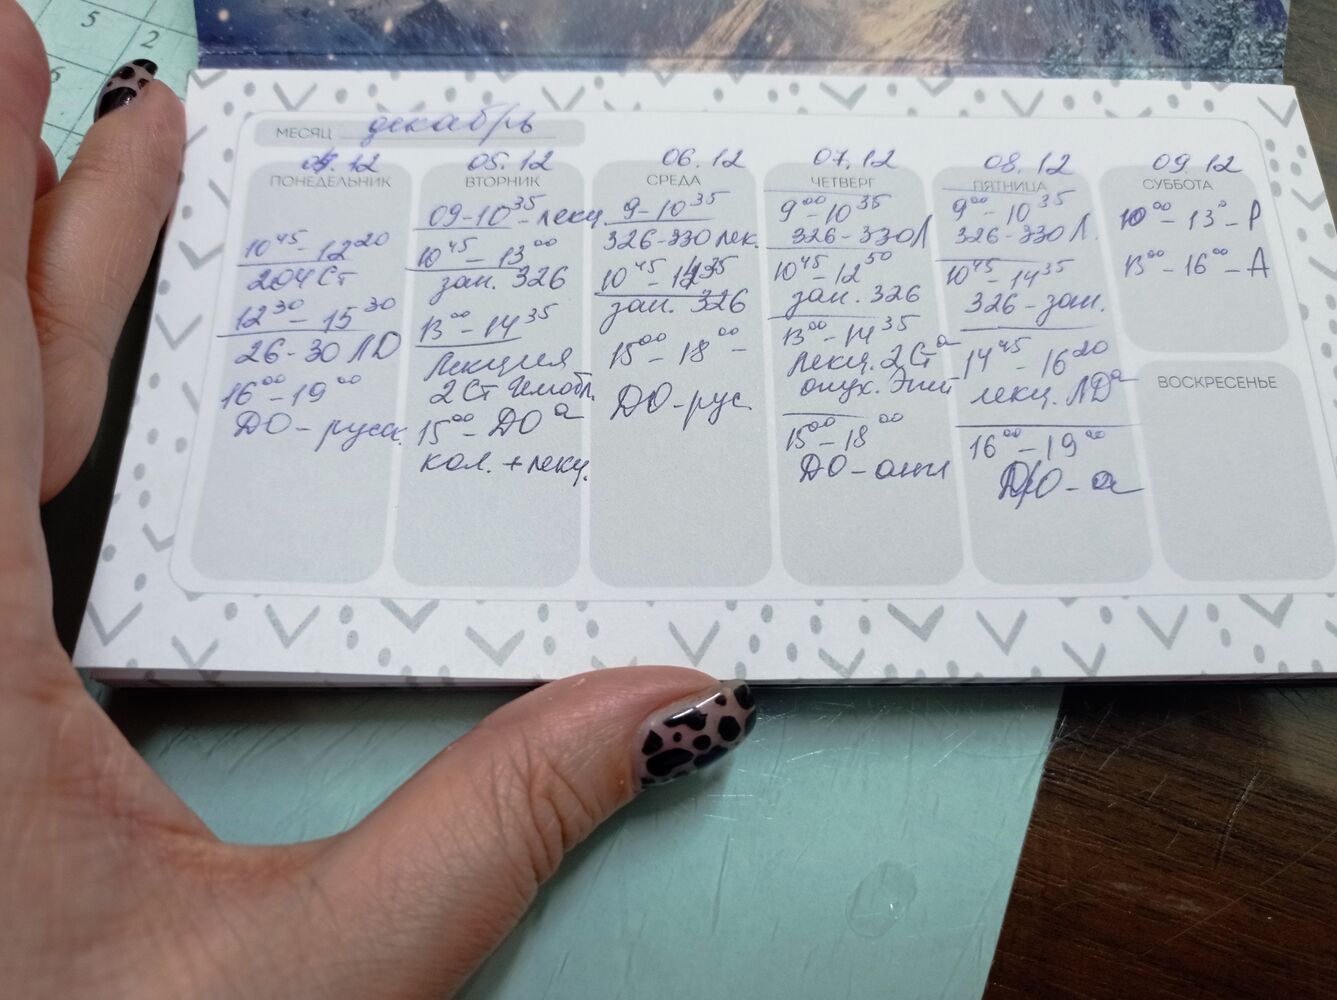 5
2
6
МЕСЯЦ декабрь
04.12
ПОНЕДЕЛЬНИК
10⁴⁵ - 12²⁰
204 Ст
12³⁰ - 15³⁰
26-30 ЛД
16⁰⁰ - 19⁰⁰
ДО - русск.
05.12
ВТОРНИК
09-10³⁵ - лекц
10⁴⁵ - 13⁰⁰
зан. 326
13⁰⁰ - 14³⁵
Лекция
2 Ст Гемобл.
15⁰⁰ - ДО а
кол. + лекц.
06.12
СРЕДА
9-10³⁵
326-330 лек.
10⁴⁵ - 14³⁵
зан. 326
15⁰⁰ - 18⁰⁰ -
ДО - рус.
07.12
ЧЕТВЕРГ
9⁰⁰ - 10³⁵
326-330 Л
10⁴⁵ - 12⁵⁰
зан. 326
13⁰⁰ - 14³⁵
лекц. 2 Ст а
опух. Эпит
15⁰⁰ - 18⁰⁰
ДО - англ
08.12
ПЯТНИЦА
9⁰⁰ - 10³⁵
326-330 Л.
10⁴⁵ - 14³⁵
326 - зан.
14⁴⁵ - 16²⁰
лекц. ЛД а
16⁰⁰ - 19⁰⁰
ДО - а
09.12
СУББОТА
10⁰⁰ - 13⁰ - Р
13⁰⁰ - 16⁰⁰ - А
ВОСКРЕСЕНЬЕ